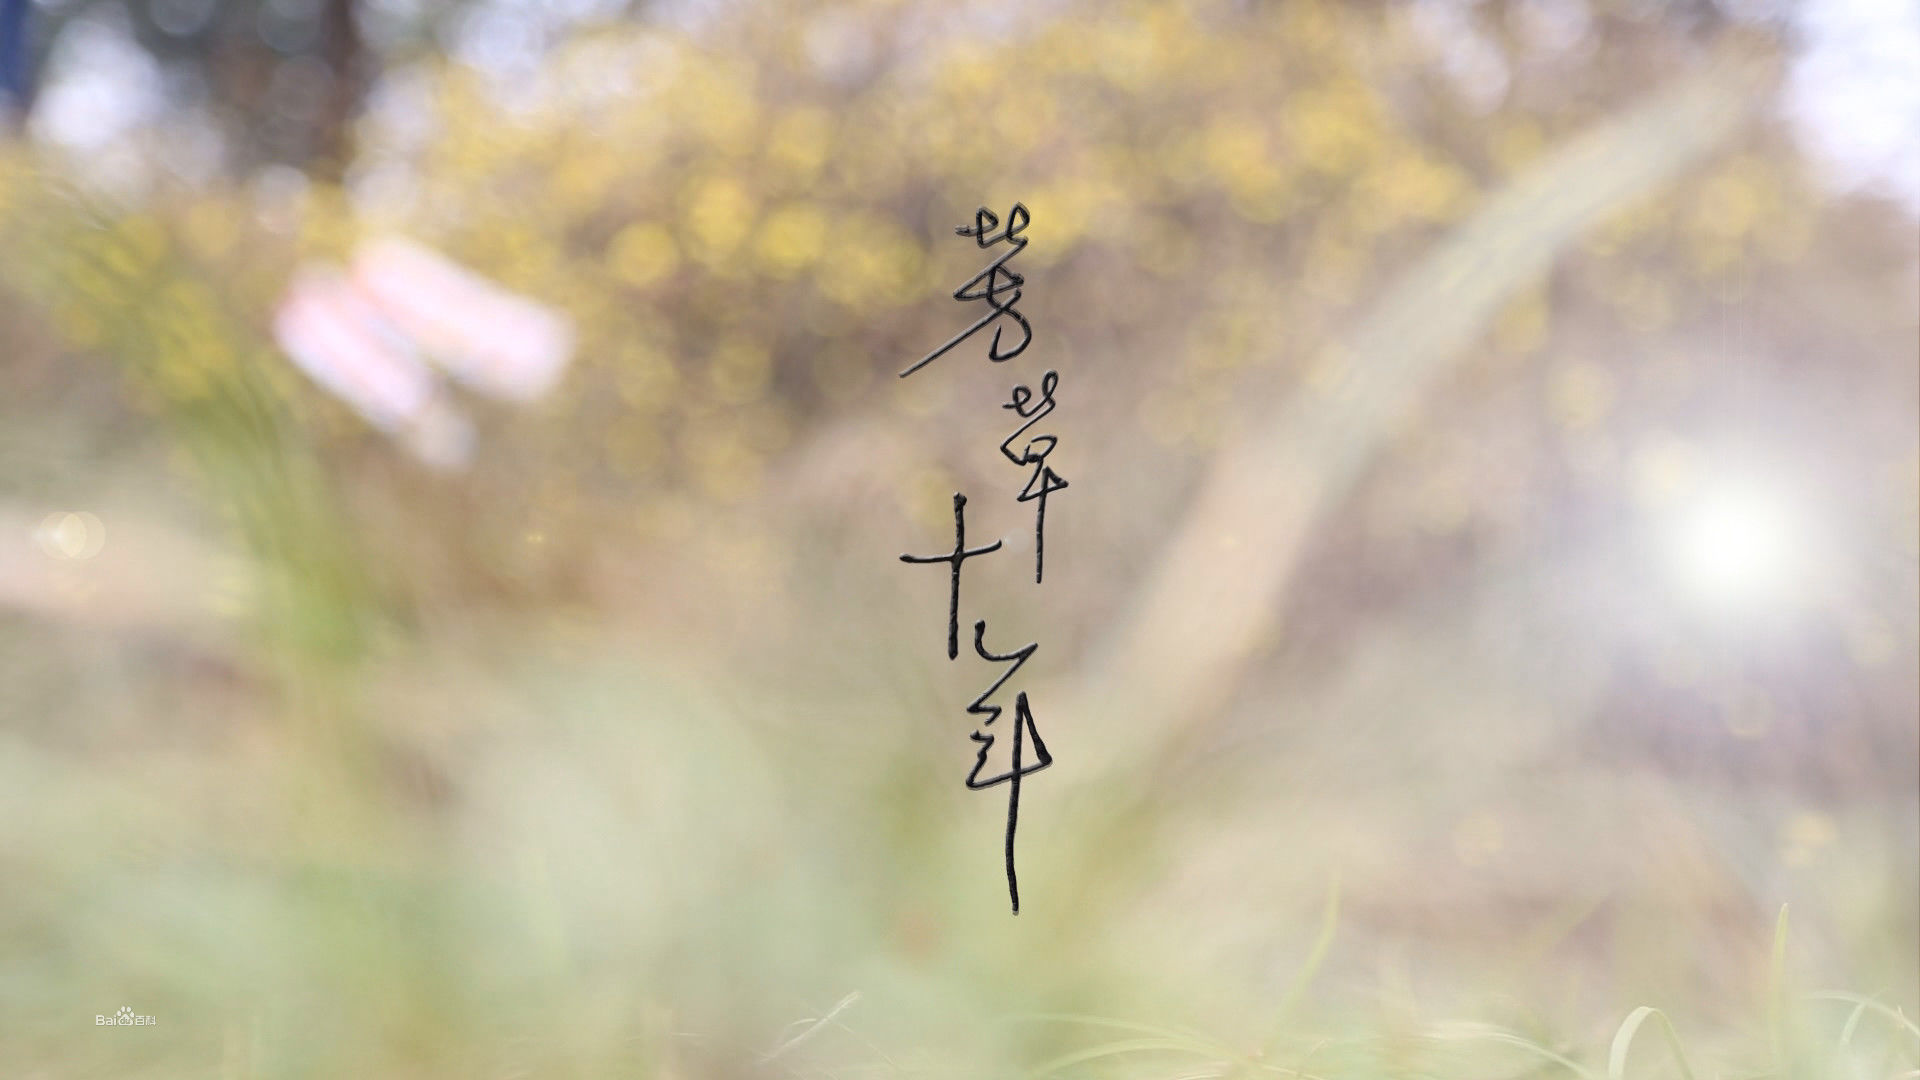 芳草十年
Bai百科